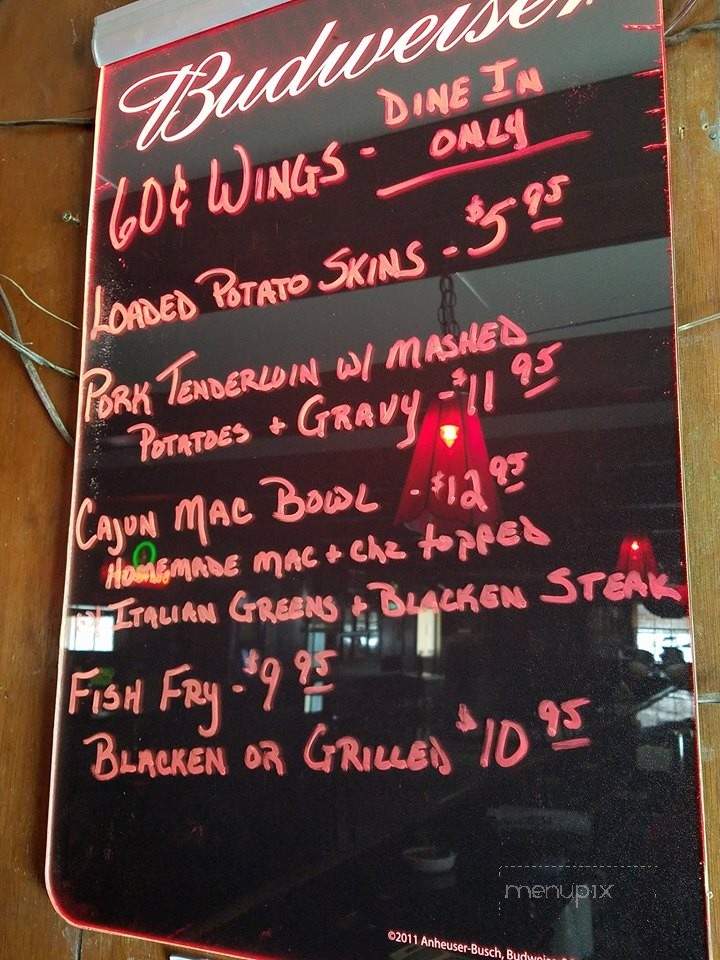 Budweiser
DINE IN
60¢ WINGS - ONLY
LOADED POTATO SKINS - $5 95
PORK TENDERLOIN W/ MASHED
POTATOES + GRAVY - $11 95
CAJUN MAC BOWL - $12 95
HOMEMADE MAC + CHZ TOPPED
W/ ITALIAN GREENS + BLACKEN STEAK
FISH FRY - $9 95
BLACKEN OR GRILLED $10 95
menupix
©2011 Anheuser-Busch, Budweiser